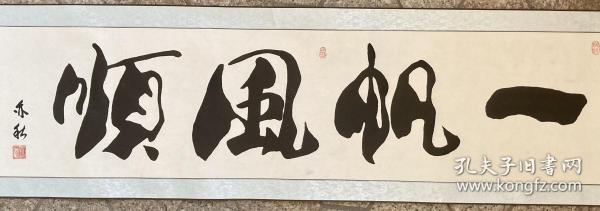 一帆風順
亦秋
孔夫子旧书网
www.kongfz.com